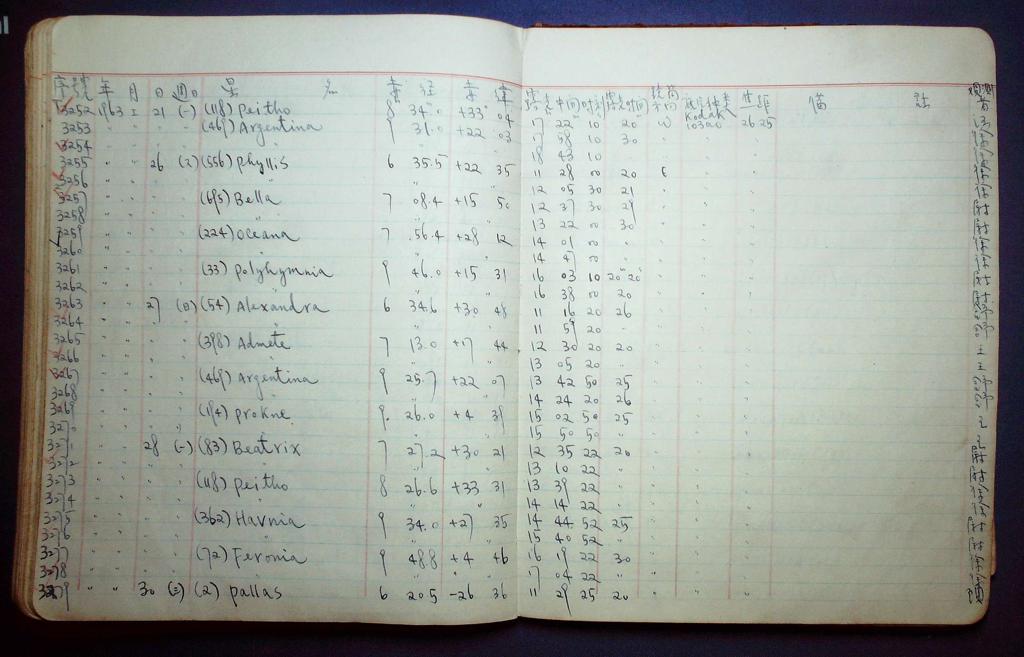 序號 年 月 日 週日 星 名 赤 経 赤 緯 露光中间时刻 露光时间 底片種类 焦距 備 註 观测者
3252 1963 三 21 (一) (118) Peitho 8 34.0 +33 04 17 22 10 20 W Kodak 103aO 26.25
3253 " " " (469) Argentina 9 31.0 +22 03 17 58 10 30
3254 18 43 10
3255 26 (556) Phyllis 6 35.5 +22 35 11 28 00 20 E
3256 12 05 30 21
3257 (695) Bella 7 08.4 +15 50 12 37 30 29
3258 13 22 00 30
3259 (224) Oceana 7 56.4 +28 12 14 01 00
3260 14 47 00
3261 (33) Polyhymnia 9 46.0 +15 31 16 03 10 20 20
3262 16 38 00 20
3263 27 (54) Alexandra 6 34.6 +30 48 11 16 20 26
3264 11 59 20
3265 (398) Admete 7 13.0 +17 44 12 30 20 20
3266 13 05 20
3267 (469) Argentina 9 25.7 +22 07 13 42 50 25
3268 14 24 20 26
3269 (194) Prokne 9 26.0 +4 39 15 02 50 25
3270 15 50 50 "
3271 28 (一) (83) Beatrix 7 27.2 +30 21 12 35 22 20
3272 13 10 22
3273 (118) Peitho 8 26.6 +33 31 13 39 22
3274 14 14 22
3275 (362) Havnia 9 34.0 +27 35 14 44 52 25
3276 15 40 52
3277 (72) Feronia 9 48.8 +4 46 16 19 22 30
3278 17 04 22 "
3279 " " 30 (三) (2) Pallas 6 20.5 -26 36 11 29 25 20